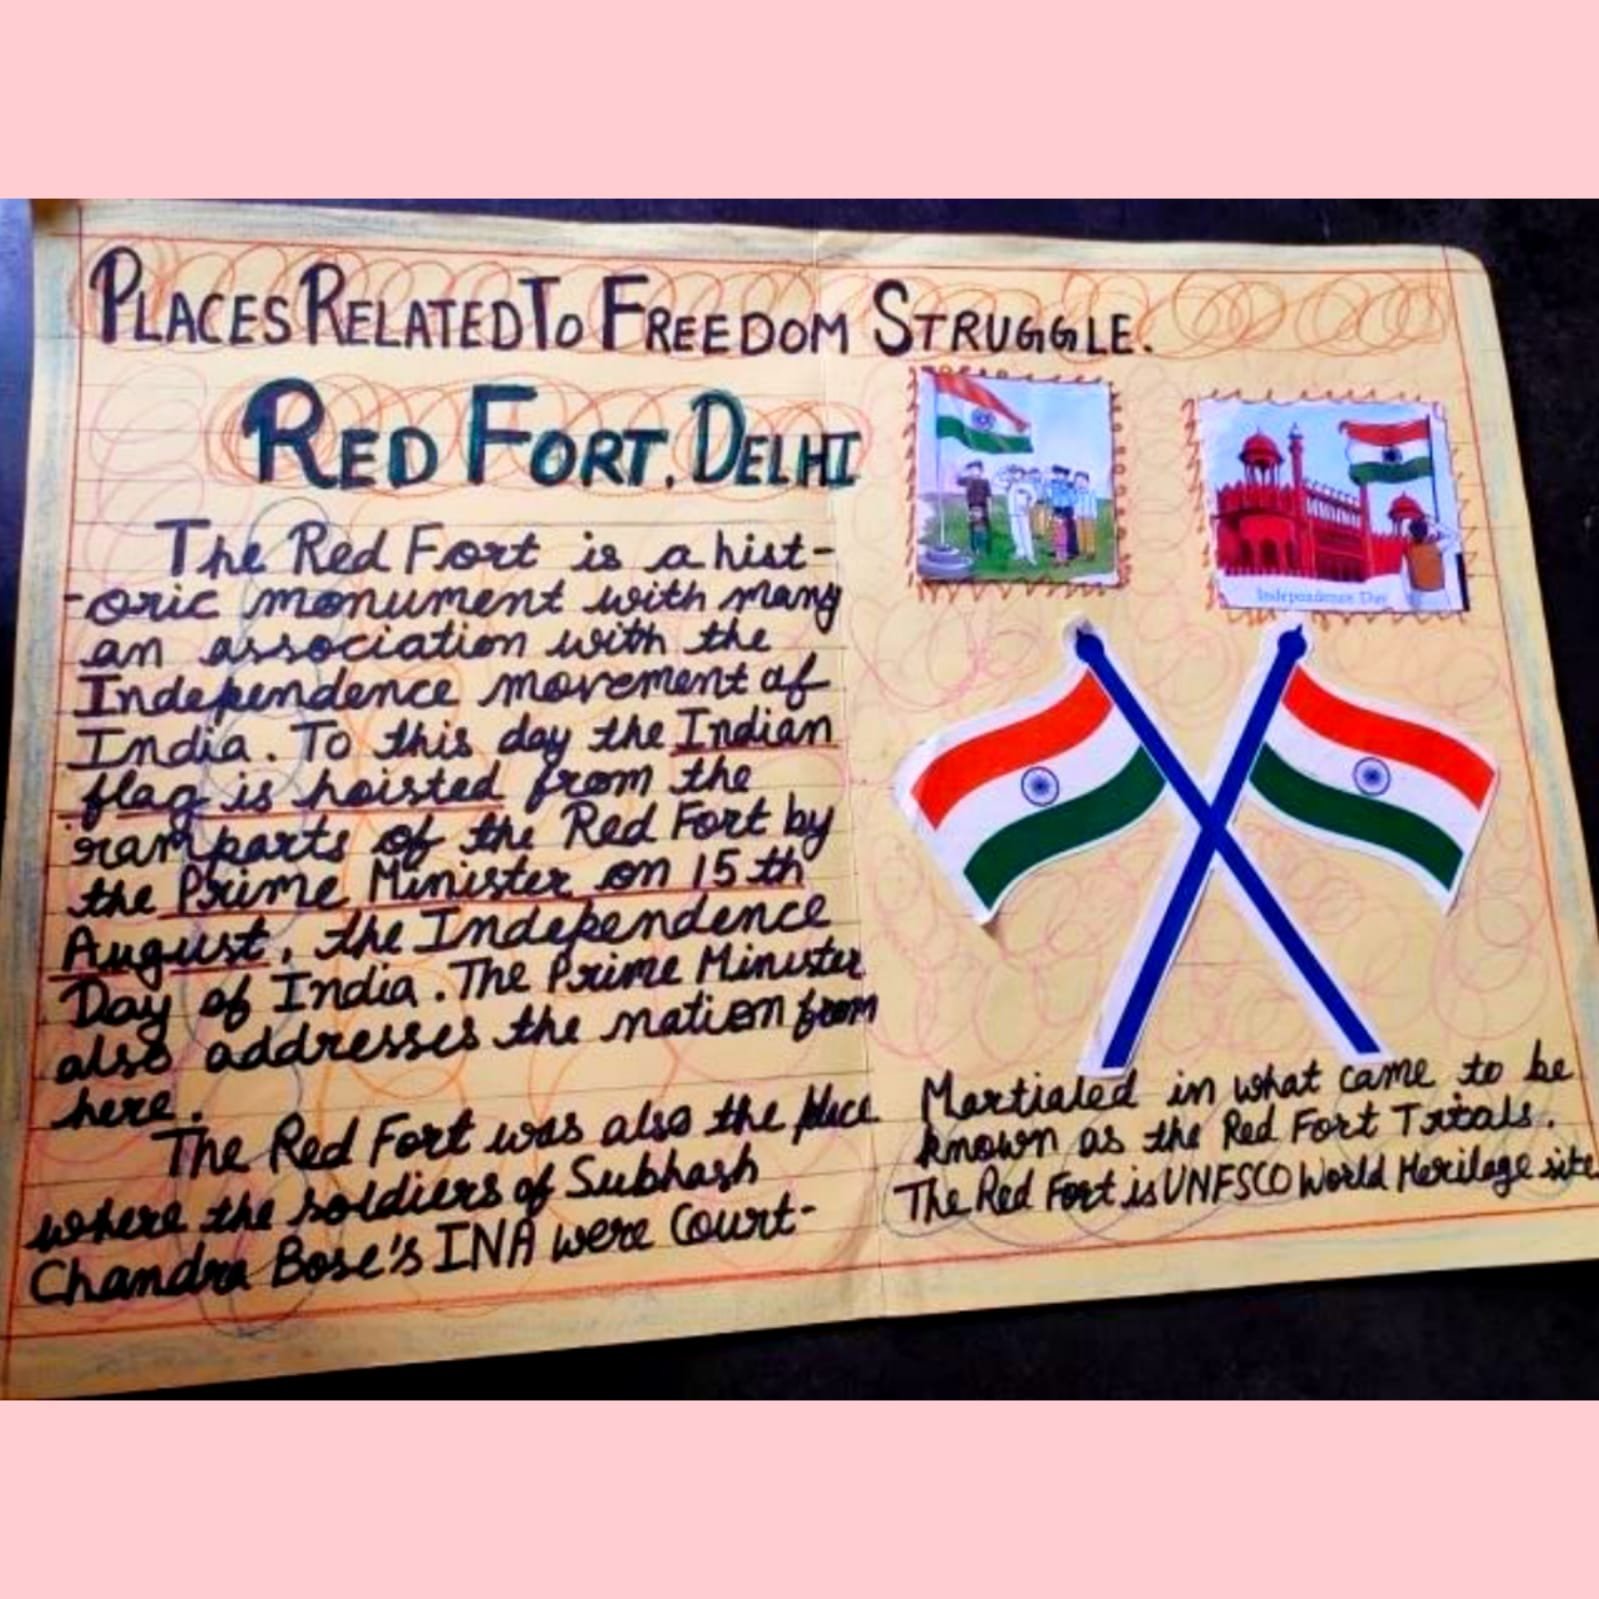 PLACES RELATED TO FREEDOM STRUGGLE.
RED FORT, DELHI
The Red Fort is a hist-
-oric monument with many
an association with the
Independence movement of
India. To this day the Indian
flag is hoisted from the
ramparts of the Red Fort by
the Prime Minister on 15th
August, the Independence
Day of India. The Prime Minister
also addresses the nation from
here.
The Red Fort was also the place
where the soldiers of Subhash
Chandra Bose's INA were Court-
Independence Day
Martialed in what came to be
known as the Red Fort Trials.
The Red Fort is UNESCO World Heritage site